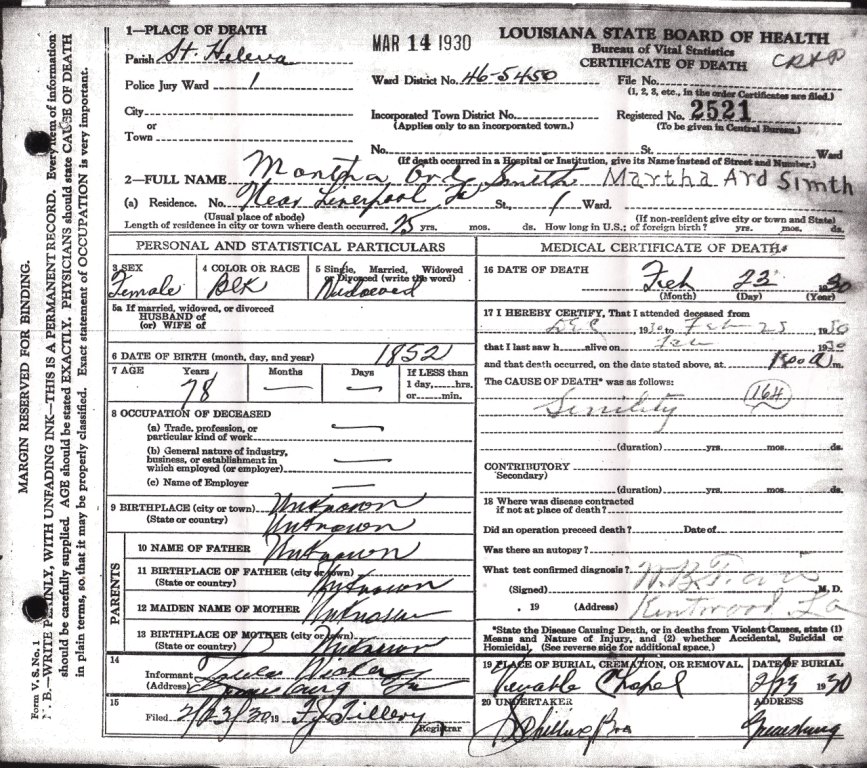 1—PLACE OF DEATH
Parish St. Helena
Police Jury Ward 1
City
or
Town
MAR 14 1930
LOUISIANA STATE BOARD OF HEALTH
Bureau of Vital Statistics
CERTIFICATE OF DEATH
Ward District No. 46-5450
File No.
(1, 2, 3, etc., in the order Certificates are filed.)
Incorporated Town District No.
(Applies only to an incorporated town.)
Registered No. 2521
(To be given in Central Bureau.)
No. St. Ward
(If death occurred in a Hospital or Institution, give its Name instead of Street and Number.)
2—FULL NAME Montha Ord Smith Martha Ard Simth
(a) Residence. No. Near Liverpool La St., 1 Ward.
(Usual place of abode) (If non-resident give city or town and State)
Length of residence in city or town where death occurred. 75 yrs. mos. ds. How long in U.S.; of foreign birth? yrs. mos. ds.
PERSONAL AND STATISTICAL PARTICULARS
3 SEX
Female
4 COLOR OR RACE
Blk
5 Single, Married, Widowed or Divorced (write the word)
Widowed
5a If married, widowed, or divorced
HUSBAND of
(or) WIFE of
6 DATE OF BIRTH (month, day, and year) 1852
7 AGE Years Months Days If LESS than
78 — — 1 day,____hrs.
or____min.
8 OCCUPATION OF DECEASED
(a) Trade, profession, or
particular kind of work —
(b) General nature of industry,
business, or establishment in
which employed (or employer) —
(c) Name of Employer —
9 BIRTHPLACE (city or town) Unknown
(State or country) Unknown
PARENTS
10 NAME OF FATHER Unknown
11 BIRTHPLACE OF FATHER (city or town)
(State or country) Unknown
12 MAIDEN NAME OF MOTHER Unknown
13 BIRTHPLACE OF MOTHER (city or town)
(State or country) Unknown
14
Informant
(Address) Greensburg La
15
Filed 2/23/30 19 F. J. Tillery
Registrar
MEDICAL CERTIFICATE OF DEATH
16 DATE OF DEATH Feb 23 1930
(Month) (Day) (Year)
17 I HEREBY CERTIFY, That I attended deceased from
DEC 1930 to Feb 23 1930
that I last saw h alive on Feb 1930
and that death occurred, on the date stated above, at m.
The CAUSE OF DEATH* was as follows:
164
Senility
(duration) yrs. mos. ds.
CONTRIBUTORY
Secondary)
(duration) yrs. mos. ds.
18 Where was disease contracted
if not at place of death?
Did an operation preceed death? Date of
Was there an autopsy?
What test confirmed diagnosis?
(Signed) M. D.
, 19 (Address) Kentwood La
*State the Disease Causing Death, or in deaths from Violent Causes, state (1)
Means and Nature of Injury, and (2) whether Accidental, Suicidal or
Homicidal. (See reverse side for additional space.)
19 PLACE OF BURIAL, CREMATION, OR REMOVAL. DATE OF BURIAL
Venable Chapel 2/23 1930
20 UNDERTAKER ADDRESS
Phillips Bro Greensburg
MARGIN RESERVED FOR BINDING.
Form V. S. No. 1
N. B.—WRITE PLAINLY, WITH UNFADING INK—THIS IS A PERMANENT RECORD. Every item of information
should be carefully supplied. AGE should be stated EXACTLY. PHYSICIANS should state CAUSE OF DEATH
in plain terms, so that it may be properly classified. Exact statement of OCCUPATION is very important.